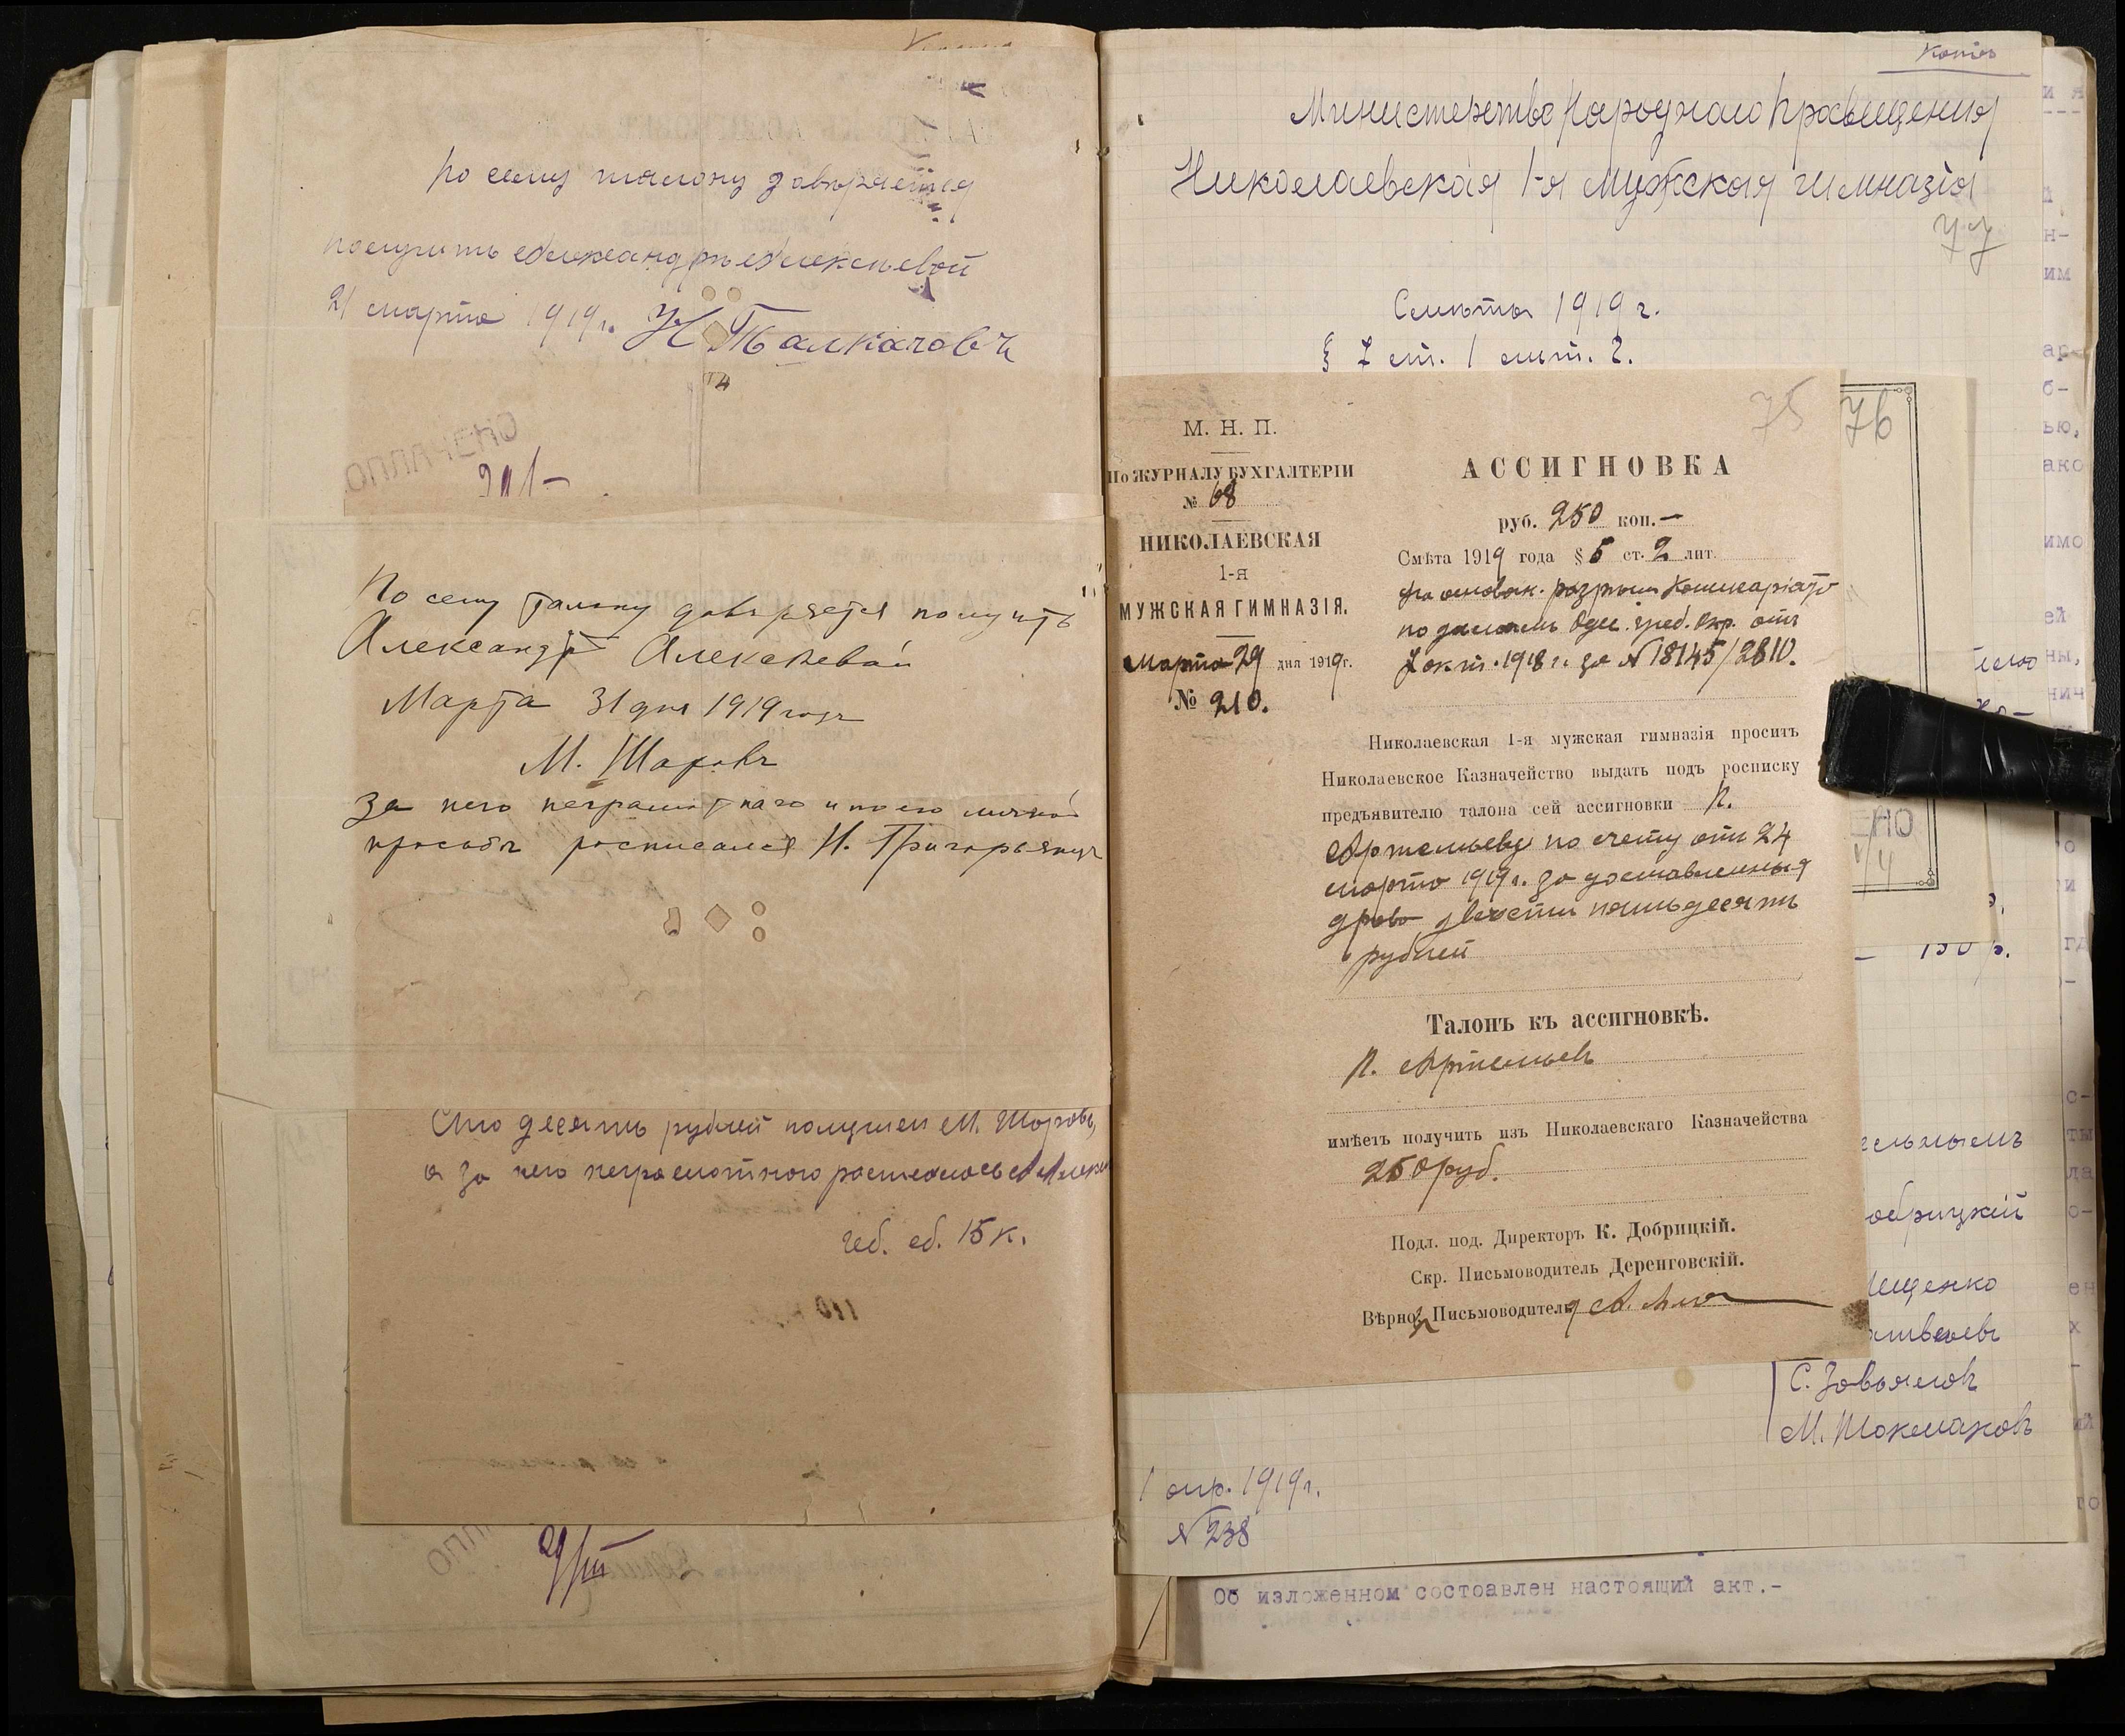 По сему талону доверяется
получить Александре Алексеевой
21 марта 1919 г. Н. Толкачовъ
ОПЛАЧЕНО
По сему талону доверяется получить
Александре Алексеевой
Марта 31 дня 1919 года
М. Шаровъ
За него неграмотнаго и по его личной
просьбе росписался Н. Григорьянцъ
Сто десять рублей получил М. Шаровъ,
а за него неграмотного росписалась
15 к.
21/III
Копія
Министерство Народнаго Просвещения
Николаевская 1-я мужская гимназія
77
Смѣта 1919 г.
§ 7 ст. 1 лит. 2.
75
76
М. Н. П.
По ЖУРНАЛУ БУХГАЛТЕРІИ
№ 68
НИКОЛАЕВСКАЯ
1-я
МУЖСКАЯ ГИМНАЗІЯ.
Марта 29 дня 1919г.
№ 210.
АССИГНОВКА
руб. 250 коп. —
Смѣта 1919 года § 5 ст. 2 лит.
На основан. разрѣш. Комиссаріата
по делам Одес. Учеб. Окр. отъ
7 окт. 1918 г. за № 18145/2810.
Николаевская 1-я мужская гимназія проситъ
Николаевское Казначейство выдать подъ росписку
предъявителю талона сей ассигновки П.
Артемьеву по счету от 24
марта 1919 г. за доставленныя
дрова двести пятьдесятъ
рублей
Талонъ къ ассигновкѣ.
П. Артемьевъ
имѣетъ получить изъ Николаевскаго Казначейства
250 руб.
Подл. под. Директоръ К. Добрицкій.
Скр. Письмоводитель Деренговскій.
Вѣрно: Письмоводитель
150 р.
обрицкій
С. Завьяловъ
М. Токмаковъ
1 апр. 1919 г.
№ 238
Об изложенном состоавлен настоящий акт.-